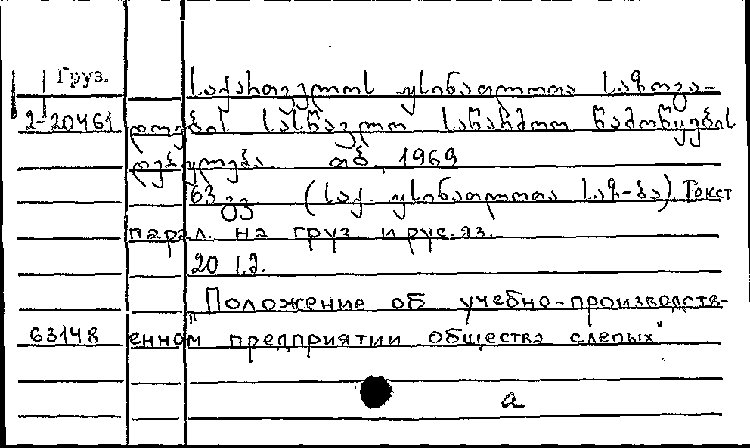 Груз.
საქართველოს უსინათლოთა საზოგა-
2-20461 დოების სასწავლო საწარმოო წარმოწყების
დებულება. თბ, 1969
63 გვ (საქ უსინათლოთა საზ-ბა). Текст
парал. на груз и рус. яз.
20 1.2.
"Положение об учебно-производств-
63148 енном предприятии общества слепых"
а